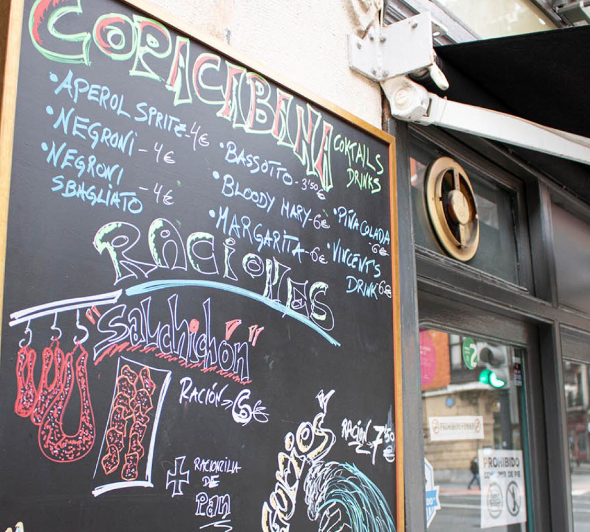 COPACABANA
COKTAILS
DRINKS
• APEROL SPRITZ 4€
• NEGRONI - 4€
• NEGRONI
SBAGLIATO - 4€
• BASSOTTO - 3'50€
• BLOODY MARY - 6€
• MARGARITA - 6€
• PIÑA COLADA
6€
• VINCENT'S
DRINK 6€
RACIONES
"SALCHICHÓN"
RACIÓN → 6€
+ RACIONZILLA
DE
Pan
RACIÓN → 7'50
€
PROHIBIDO FUMAR
PROHIBIDO